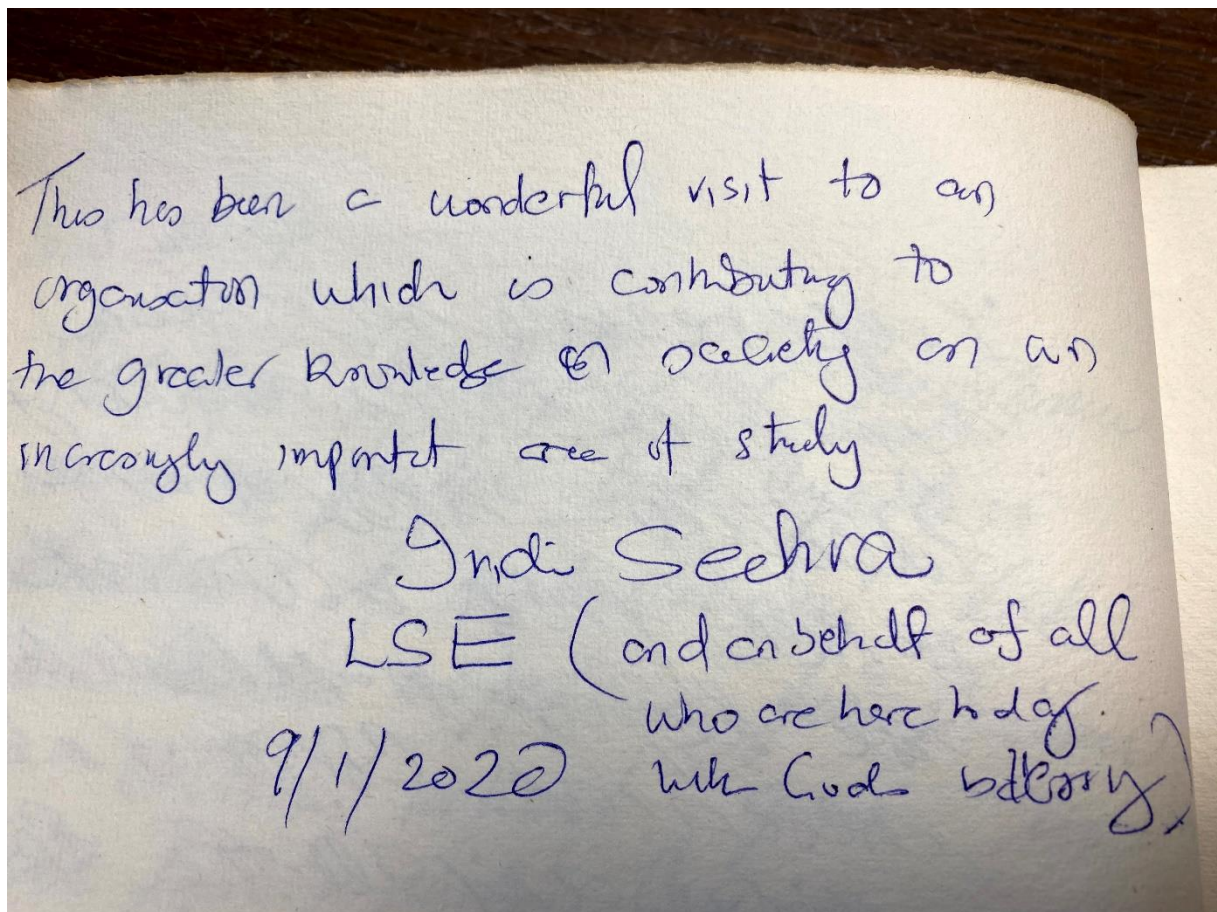 This has been a wonderful visit to an
organisation which is contributing to
the greater knowledge on society on an
increasingly important area of study
Indi Seehra
LSE (and on behalf of all
who are here today.
9/1/2020 with Gods